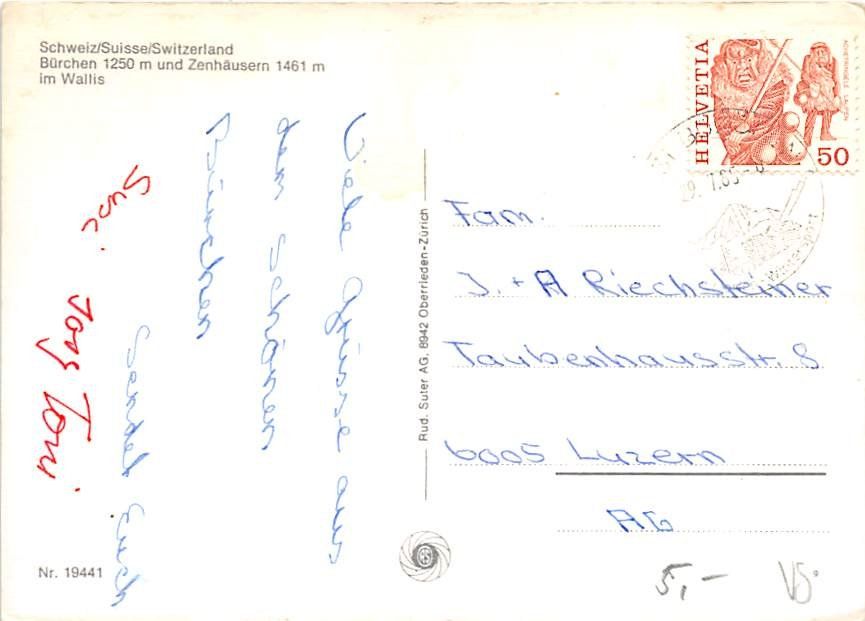 Schweiz/Suisse/Switzerland
Bürchen 1250 m und Zenhäusern 1461 m
im Wallis
Viele Grüsse aus
dem schönen
Bürchen
sendet Euch
Susi Toni
HELVETIA
ACHETRINGELE LAUPEN
50
Fam.
J. + A Riechsteiner
Taubenhausstr. 8
6005 Luzern
AG
Rud. Suter AG, 8942 Oberrieden-Zürich
Nr. 19441
5,-
VS